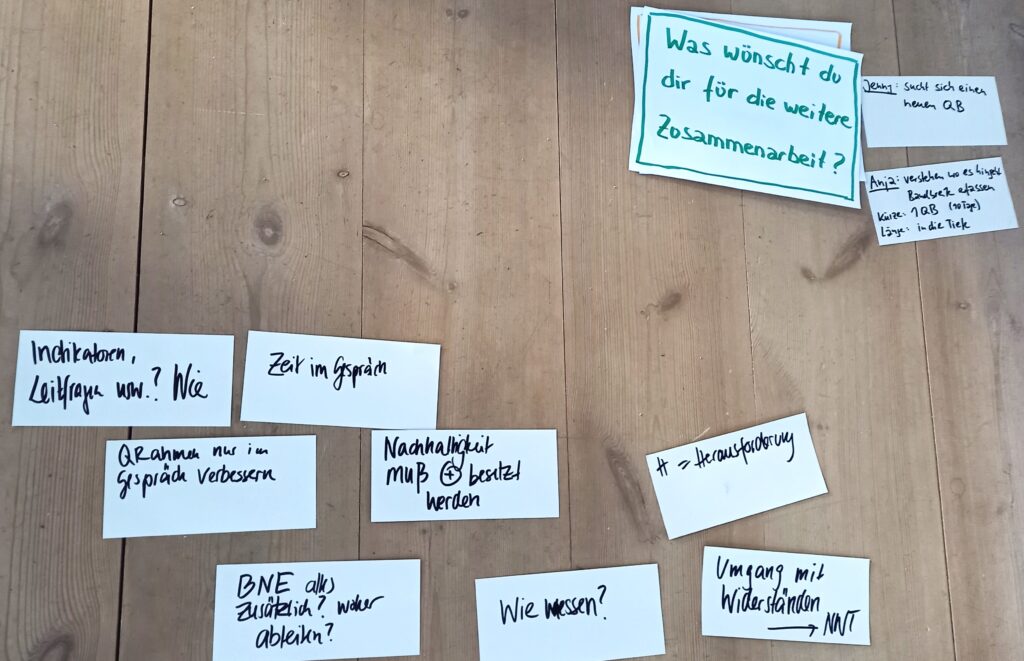 Was wünscht du
dir für die weitere
Zusammenarbeit?
Jenny: sucht sich einen
neuen QB
Anja: verstehen wo es hingeht
Bandbreite erfassen
Kürze: 1 QB (10 Tage)
Länge: in die Tiefe
Indikatoren,
Leitfragen usw.? Wie
Zeit im Gespräch
QRahmen nur im
Gespräch verbessern
Nachhaltigkeit
muß + besetzt
werden
H = Herausforderung
BNE alls
zusätzlich? woher
ableiten?
Wie messen?
Umgang mit
Widerständen
→ NNT